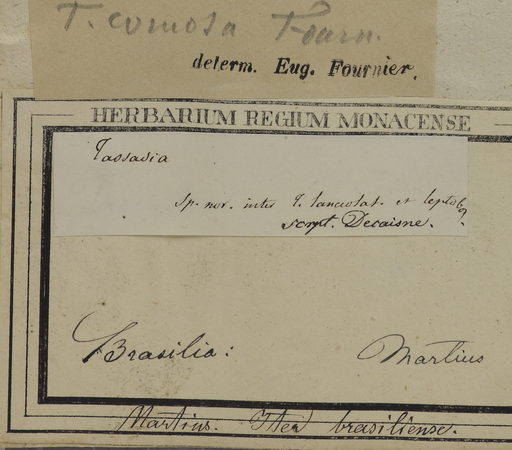 T. comosa Fourn.
determ. Eug. Fournier.
HERBARIUM REGIUM MONACENSE
Tassadia
Sp. nov. inter T. lanceolat. et
script. Decaisne.
Brasilia: Martius
Martius. Iter brasiliense.